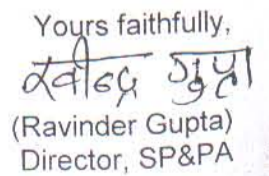 Yours faithfully,
रवीन्द्र गुप्ता
(Ravinder Gupta)
Director, SP&PA